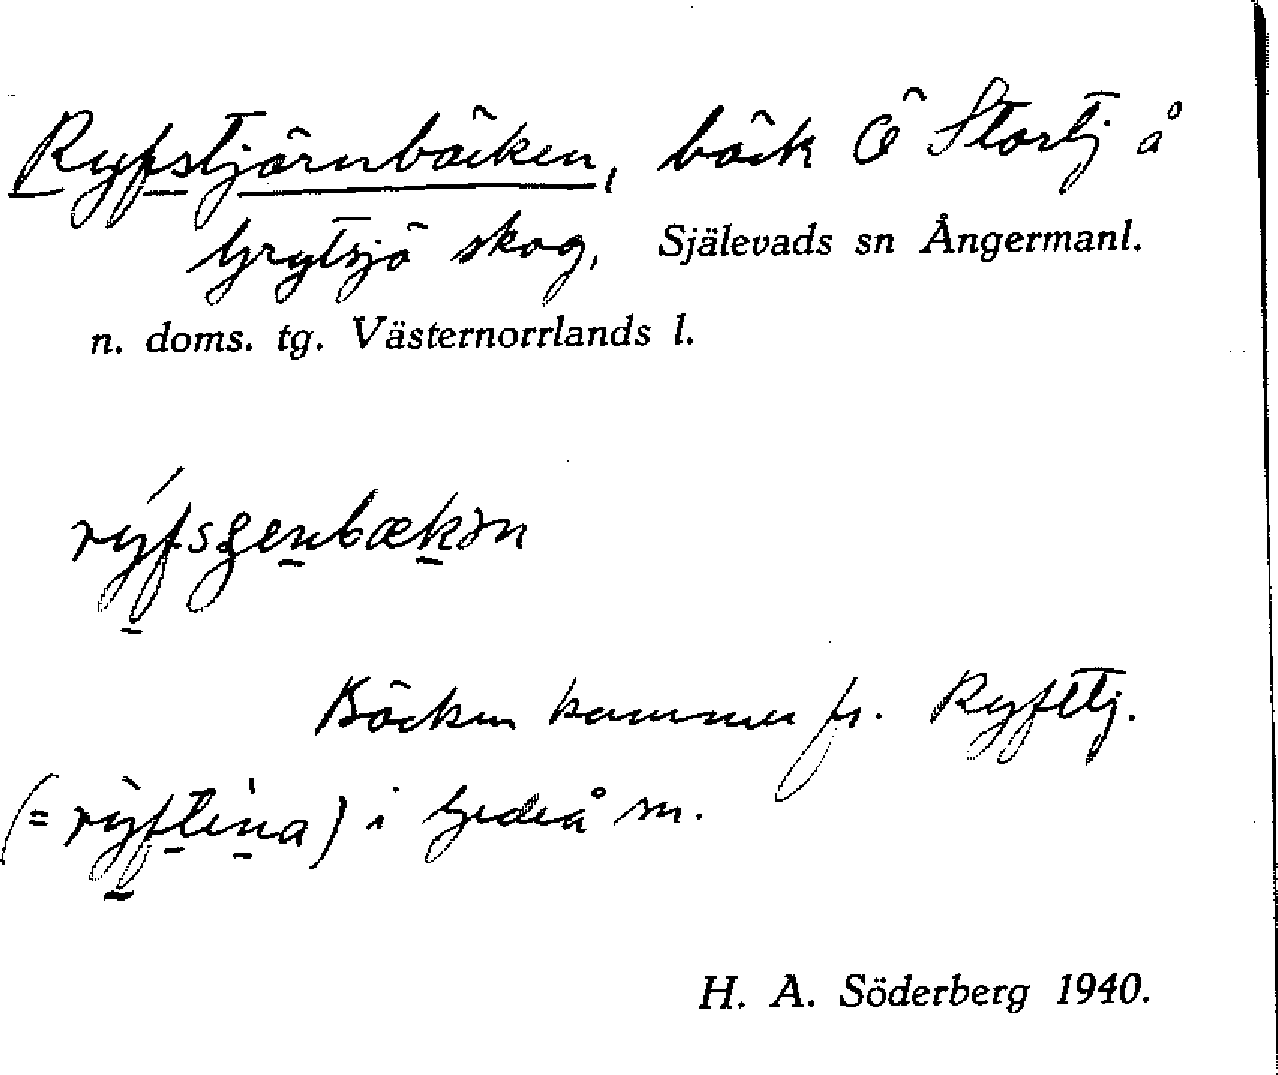 Ryfstjärnbäcken, bäck Ö Stortj å
Grytsjö skog, Själevads sn Ångermanl.
n. doms. tg. Västernorrlands l.
Bäcken kommer fr. Ryfttj.
i Gideå sn.
H. A. Söderberg 1940.